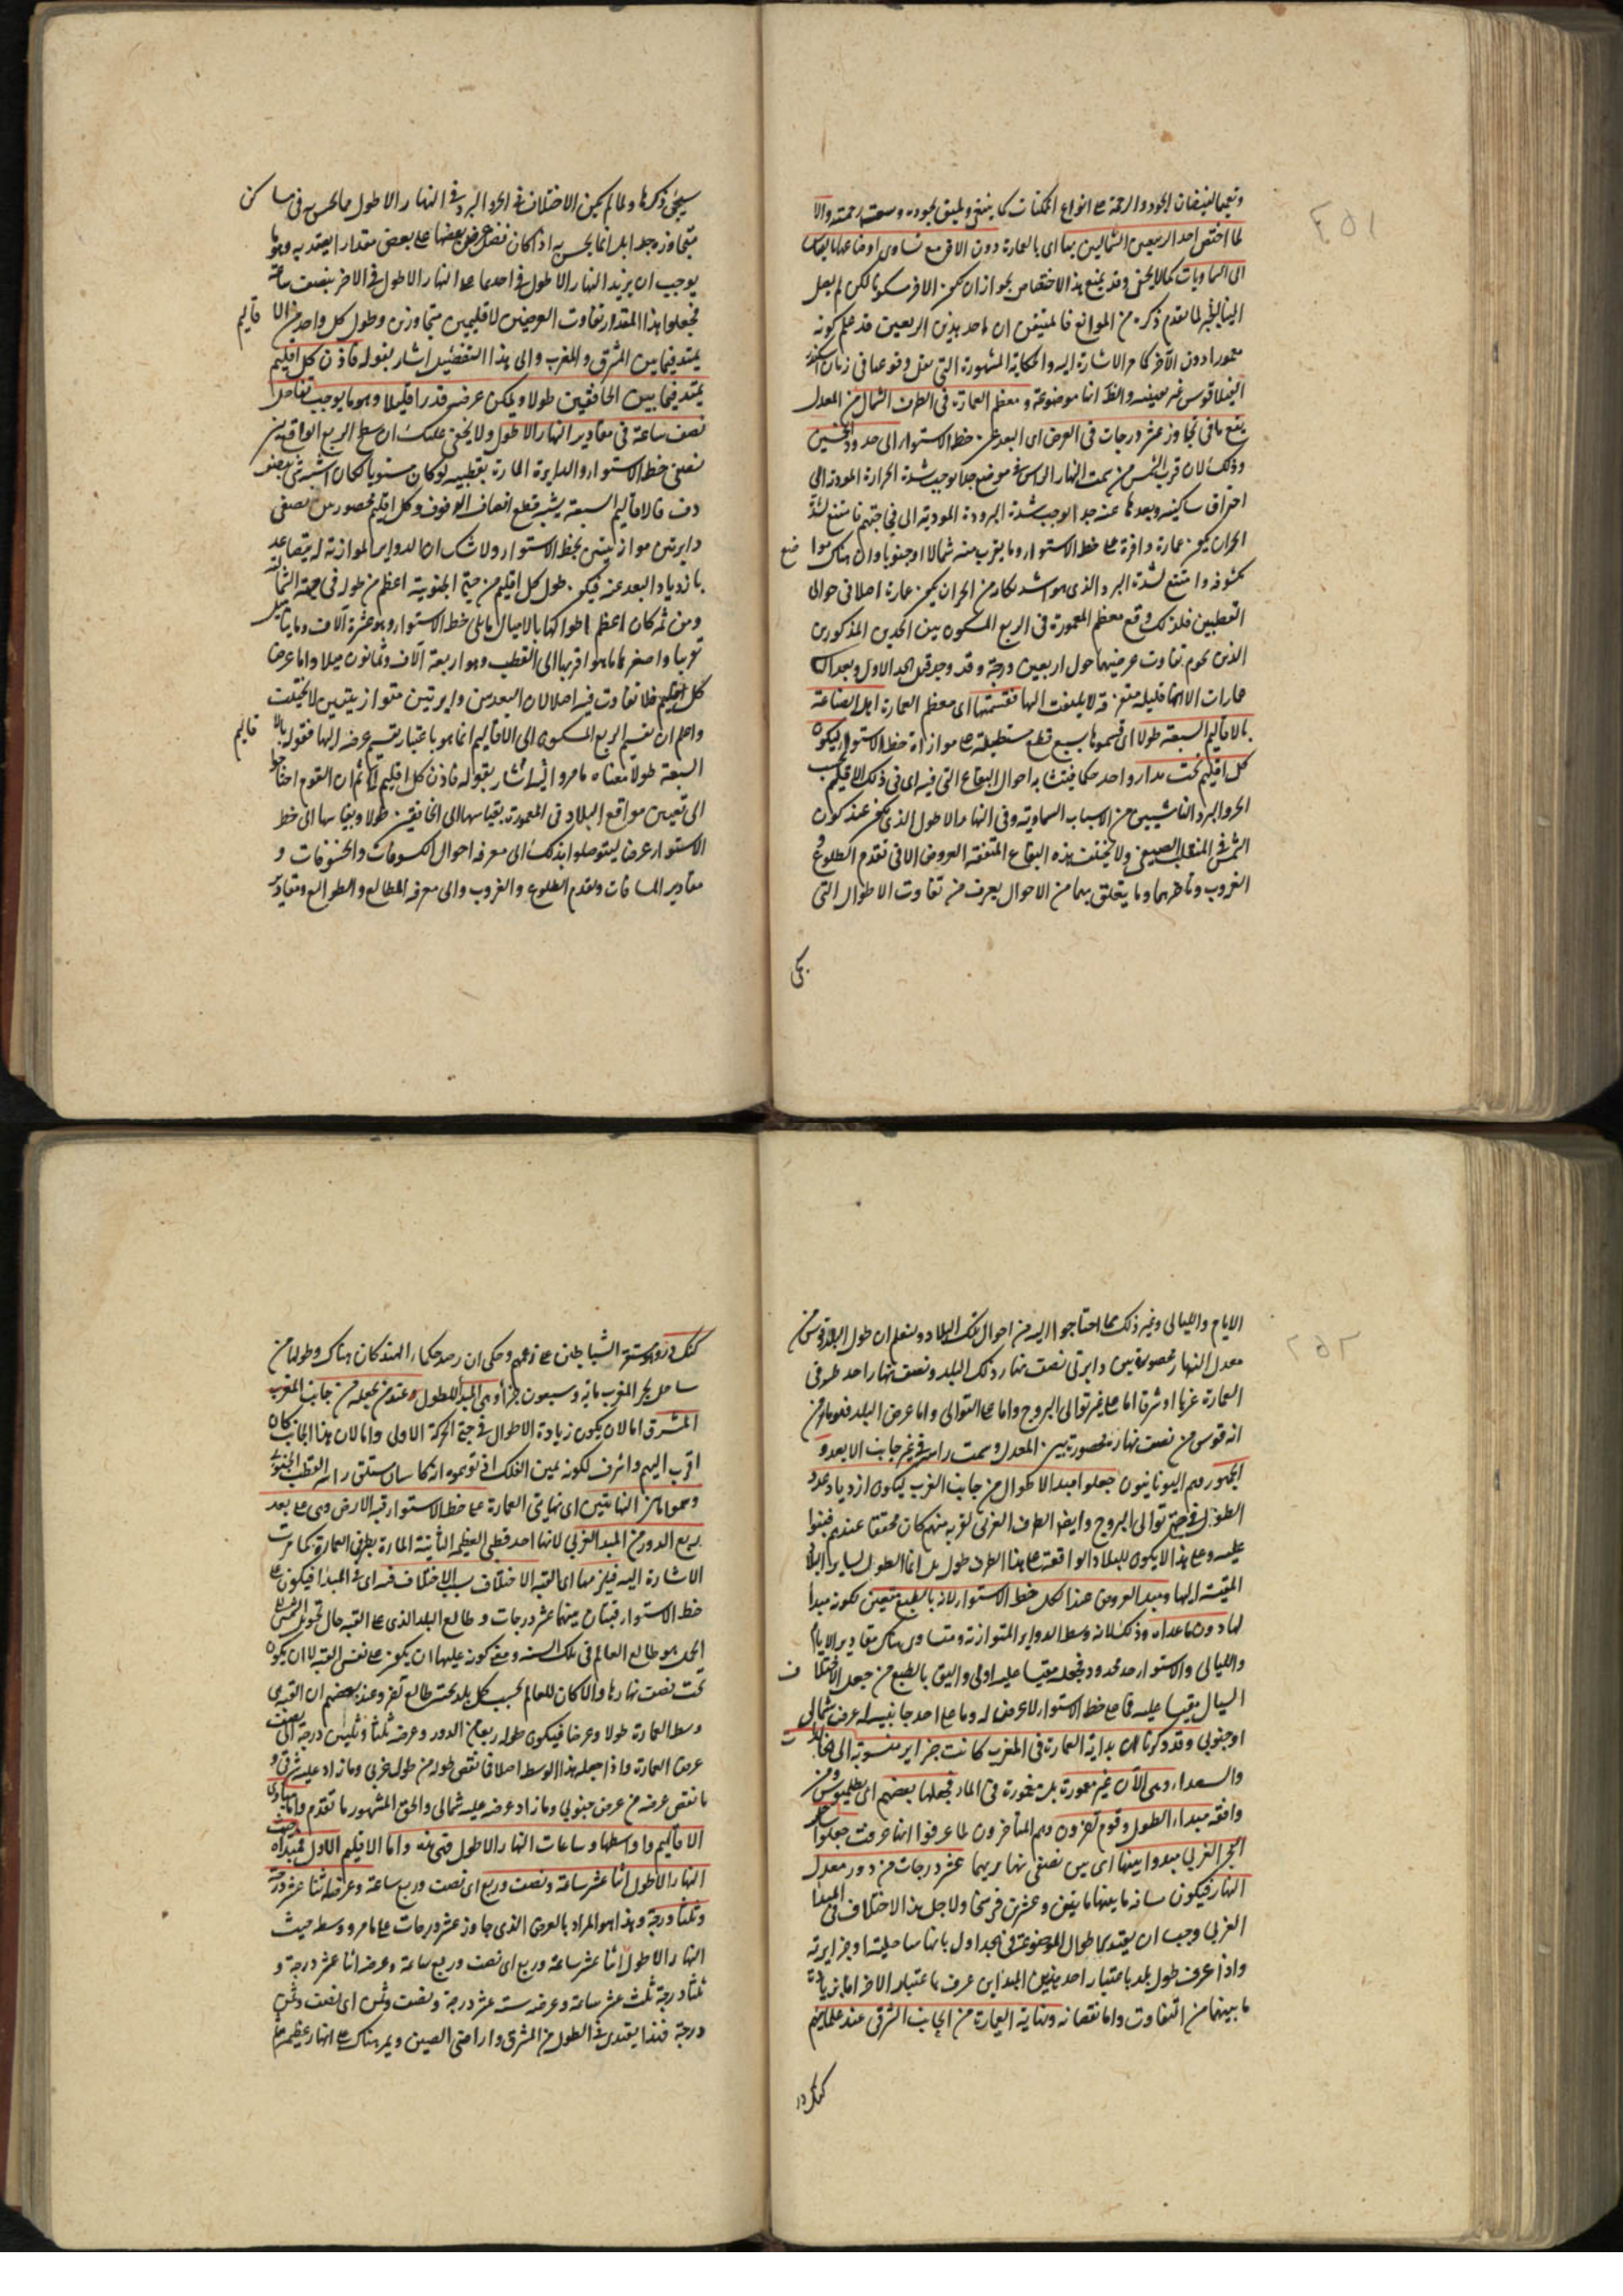 ٢٥١
وتعميما لفيضان الجود والرحمة على انواع الممكنات كما ينبغي ويليق بجوده وسعت رحمته والا
لما اختص احد الربعين الشماليين بها اى بالعمارة دون الاخر مع تساوى اوضاعهما بالقياس
الى السماويات كما لا يخفى وقد يمنع هذا الاختصاص بجواز ان يكون الاخر مسكونا لكن لم يصل
الينا خبره لما تقدم ذكره من الموانع فالمتيقن ان احد هذين الربعين قد علم كونه
معمورا دون الآخر كما مر الاشارة اليه والحكاية المشهورة التى نقل وقوعها فى زمان
غير معينة والظ انها موضوعة ومعظم العمارة فى الطرف الشمالى من المعدل
يقع ما فى تجاوز عشر درجات فى العرض اى البعد عن خط الاستواء الى حدود الخمسين
وذلك لان قرب الشمس من سمت الراس فى موضع جدا يوجب شدة الحرارة المودية الى
احتراق ساكنيه وبعدها عنه جدا يوجب شدة البرودة المودية الى فجاجتهم فامتنع لشدة
الحر ان يكون عمارة وافرة على خط الاستواء وما يقرب منه شمالا او جنوبا وان هناك مواضع
مكشوفة وامتنع لشدة البرد الذى هو اشد نكاية من الحر ان يكون عمارة اصلا فى حوالى
القطبين فلذلك وقع معظم المعمورة فى الربع المسكون بين الحدين المذكورين
الذين يحوم تفاوت عرضيهما حول اربعين درجة وقد وجد قبل الحد الاول وبعد الثانى
عمارات الا انها قليلة متفرقة لا يلتفت اليها فقسمتها اى معظم العمارة اهل الصناعة
بالاقاليم السبعة طولا اى قسموها بسبع قطع مستطيلة على موازاة خط الاستواء ليكون
كل اقليم تحت مدار واحد حكما فيتشابه احوال البقاع التى فيه اى فى ذلك الاقليم بحسب
الحر والبرد الناشيين من الاسباب السماوية وفى النهار الاطول الذى يكون عند كون
الشمس فى المنقلب الصيفى ولا يختلف هذه البقاع المتفقة العروض الا فى تقدم الطلوع و
الغروب وتاخرهما وما يتعلق بهما من الاحوال يعرف من تفاوت الاطوال التى
يجى
سيجئ ذكرها ولما لم يكن الاختلاف فى الحر والبرد فى النهار الاطول مما يحس به فى مساكن
متجاوزة جدا بل انما يحس به اذا كان فضل عرض بعضها على بعض مقدارا يعتد به وهو ما
يوجب ان يزيد النهار الاطول فى احدهما على النهار الاطول فى الاخر بنصف ساعة
فجعلوا هذا المقدار تفاوت العرضين لاقليمين متجاوزين وطول كل واحد من الاقاليم
يمتد فيما بين المشرق والمغرب والى هذا التفصيل اشار بقوله فاذن كل اقليم
يمتد فيما بين الخافقين طولا ويمكن عرضه قدرا قليلا وهو ما يوجب تفاضل
نصف ساعة فى مقادير النهار الاطول ولا يخفى عليك ان سطح الربع الواقع بين
نصفى خط الاستواء والدايرة المارة بقطبيه لو كان مستويا لكان اشبه شئ بنصف
دف فالاقاليم السبعة يشبه قطع انصاف الدفوف وكل اقليم محصور بين نصفى
دايرتين موازيتين لخط الاستواء ولا شك ان الدواير الموازية له يتصاعد
بازدياد البعد عنه فيكون طول كل اقليم من جهة الجنوبية اعظم من طوله فى جهة الشمالية
ومن ثم كان اعظم اطوالها بالاميال ما يلى خط الاستواء وهو عشرة آلاف ومايتا ميل
تقريبا واصغرها ما هو اقربها الى القطب وهو اربعة آلاف وثمانون ميلا واما عرض
كل اقليم فلا تفاوت فيه اصلا لان البعد بين دايرتين متوازيتين لا يختلف
واعلم ان تقسيم الربع المسكون الى الاقاليم انما هو باعتبار تقسيم عرضه اليها فقوله بالاقاليم
السبعة طولا معناه ما مر واليه اشار بقوله فاذن كل اقليم الخ ثم ان القوم احتاجوا
الى تعيين مواقع البلاد فى المعمورة بقياسها الى الخافقين طولا وبقياسها الى خط
الاستواء عرضا ليتوصلوا بذلك الى معرفة احوال الكسوفات والخسوفات و
مقادير المسافات وتقدم الطلوع والغروب والى معرفة المطالع والطوالع ومقادير
٢٥٢
الايام والليالى وغير ذلك مما احتاجوا اليه من احوال تلك البلاد ولنعلم ان طول البلد قوس من
معدل النهار محصورة بين دايرتى نصف نهار ذلك البلد ونصف نهار احد طرفى
العمارة غربا او شرقا اما على غير توالى البروج واما على التوالى واما عرض البلد فهو ما مر من
انه قوس من نصف نهاره محصورة بين المعدل وسمت راسه فى غير جانب الابعد و
الجمهور وهم اليونانيون جعلوا مبدا الاطوال من جانب الغرب ليكون ازدياد عدد
الطول فى جهة توالى البروج وايضا الطرف الغربى لقربه منهم كان محققا عندهم فبنوا
عليه وعلى هذا لا يكون للبلاد الواقعة على هذا الطرف طول بل انما الطول لساير البلاد
المقيسة اليها ومبدا العروض هذا لكل خط الاستواء لانه بالطبع متعين لكونه مبدا
لها دون ما عداه وذلك لانه وسط الدواير المتوازنة ومتساوى هناك مقادير الايام
والليالى والاستواء حد محدود فجعله مقيسا عليه اولى واليق بالطبع من جعل الاختلاف
السيال مقيسا عليه فما على خط الاستواء لا عرض له وما على احد جانبيه له عرض شمالى
او جنوبى وقد ذكرنا ان بداية العمارة فى المغرب كانت جزاير منسوبة الى الخالدات
والسعداء وهى الآن غير معمورة بل مغمورة فى الماء فجعلها بعضهم اى بطلميوس ومن
وافقه مبداء الطول وقوم آخرون وهم المتأخرون لما عرفوا انها غرقت جعلوا ساحل
البحر الغربى مبدا وبينها اى بين نصفى نهاريهما عشر درجات من دور معدل
النهار فيكون مسافة ما بينهما مايتين وعشرين فرسخا ولاجل هذا الاختلاف فى المبدا
الغربى وجب ان يقيد اطوال الموضوعة فى الجداول بانها ساحلية او جزايرية
واذا عرف طول بلد باعتبار احد هذين المبداين عرف باعتبار الاخر اما بزيادة
ما بينهما من التفاوت واما نقصانه ونهاية العمارة من الجانب الشرقى عند علمايهم
كنك در
كنك دز وهو مستقر الشياطين على زعمهم وحكى ان رصد حكماء الهند كان هناك وطولها من
ساحل بحر المغرب مائة وسبعون جزأ وهى المبدا للطول عند من يجعله من جانب المغرب
المشرق اما لان يكون زيادة الاطوال فى جهة الحركة الاولى واما لان هذا الجانب كان
اقرب اليهم واشرف لكونه يمين الفلك اذ توهموه انه كانسان مستلق راسه القطب الجنوبى
وسموا ما بين النهايتين اى نهايتى العمارة على خط الاستواء قبة الارض وهى على بعد
ربع الدور من المبدا الغربى لانها احد قطبى العظيمة الثانية المارة بطرفى العمارة كما مرت
الاشارة اليه فيلزمها اى القبة الاختلاف بسبب الاختلاف فيه اى فى المبدا فيكون على
خط الاستواء قبتان بينهما عشر درجات وطالع البلد الذى على القبة حال تحويل الشمس الى
الحمل هو طالع العالم فى تلك السنة ومعنى كونه عليها ان يكون على نفس القبة لا ان يكون
تحت نصف نهارها والا كان للعالم بحسب كل بلد تحته طالع آخر وعند بعضهم ان القبة هى
وسط العمارة طولا وعرضا فيكون طوله ربعا من الدور وعرضه ثلثا وثلثين درجة اى نصف
عرض العمارة واذا جعل هذا الوسط اصلا فما نقص طوله من طوله غربى وما زاد عليه شرقى و
ما نقص عرضه من عرضه جنوبى وما زاد عرضه عليه شمالى والحق المشهور ما تقدم واما مبادى
الاقاليم واواسطها وساعات النهار الاطول فهى هذه واما الاقليم الاول فمبداه حيث
النهار الاطول اثنا عشر ساعة ونصف وربع اى نصف وربع ساعة وعرضه اثنا عشر درجة
وثلثا درجة وهذا هو المراد بالعرض الذى جاوز عشر درجات على ما مر ووسطه حيث
النهار الاطول اثنا عشر ساعة وربع اى نصف وربع ساعة وعرضه اثنا عشر درجة و
ثلثا درجة ثلث عشر ساعة وعرضه ستة عشر درجة ونصف وثمن اى نصف وثمن
درجة فهذا يبتدى فى الطول من المشرق واراضى الصين ويمر هناك على انهار عظيمة